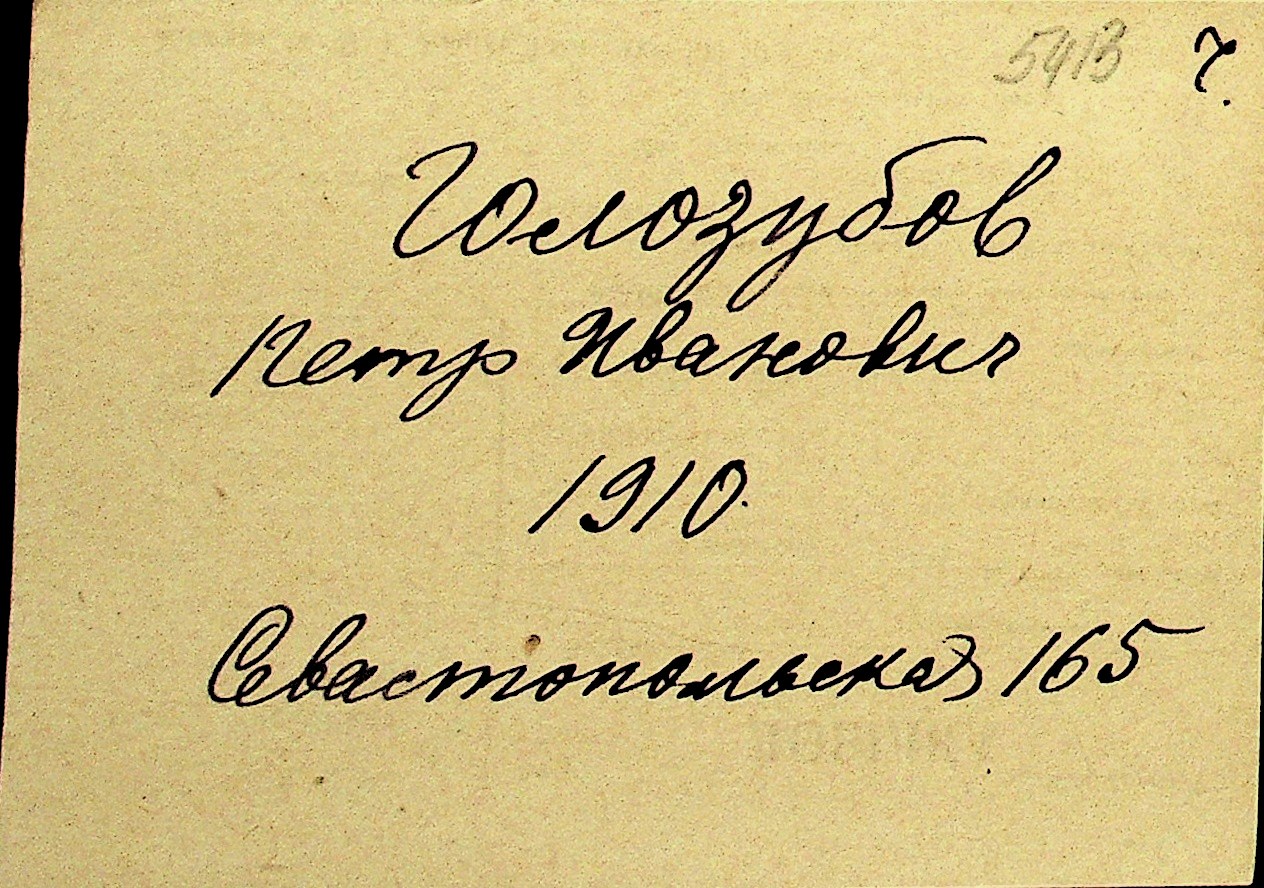 5413 7.
Голозубов
Петр Иванович
1910.
Севастопольская 165